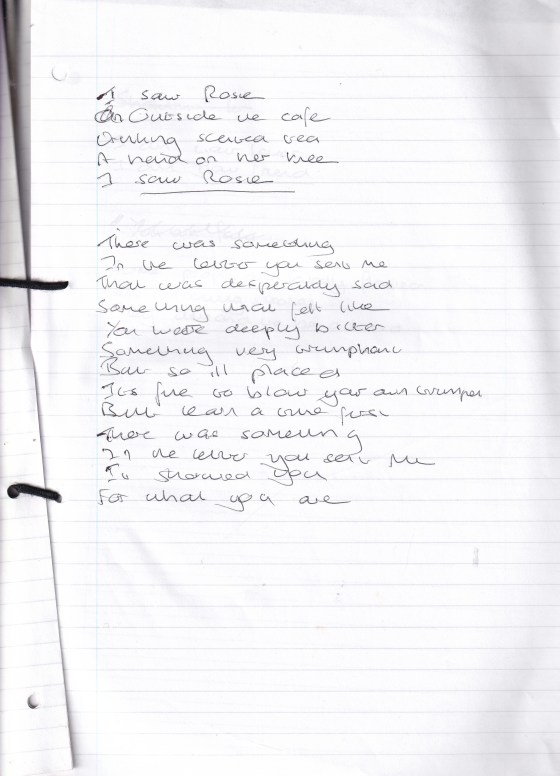 I saw Rosie
Outside the cafe
Drinking stewed tea
A hand on her knee
I saw Rosie
There was something
In the letter you sent me
That was desperately sad
Something that felt like
You were deeply bitter
Something very triumphant
But so ill placed
It's fine to blow your own trumpet
But learn a tune first
There was something
In the letter you sent me
It showed you
For what you are